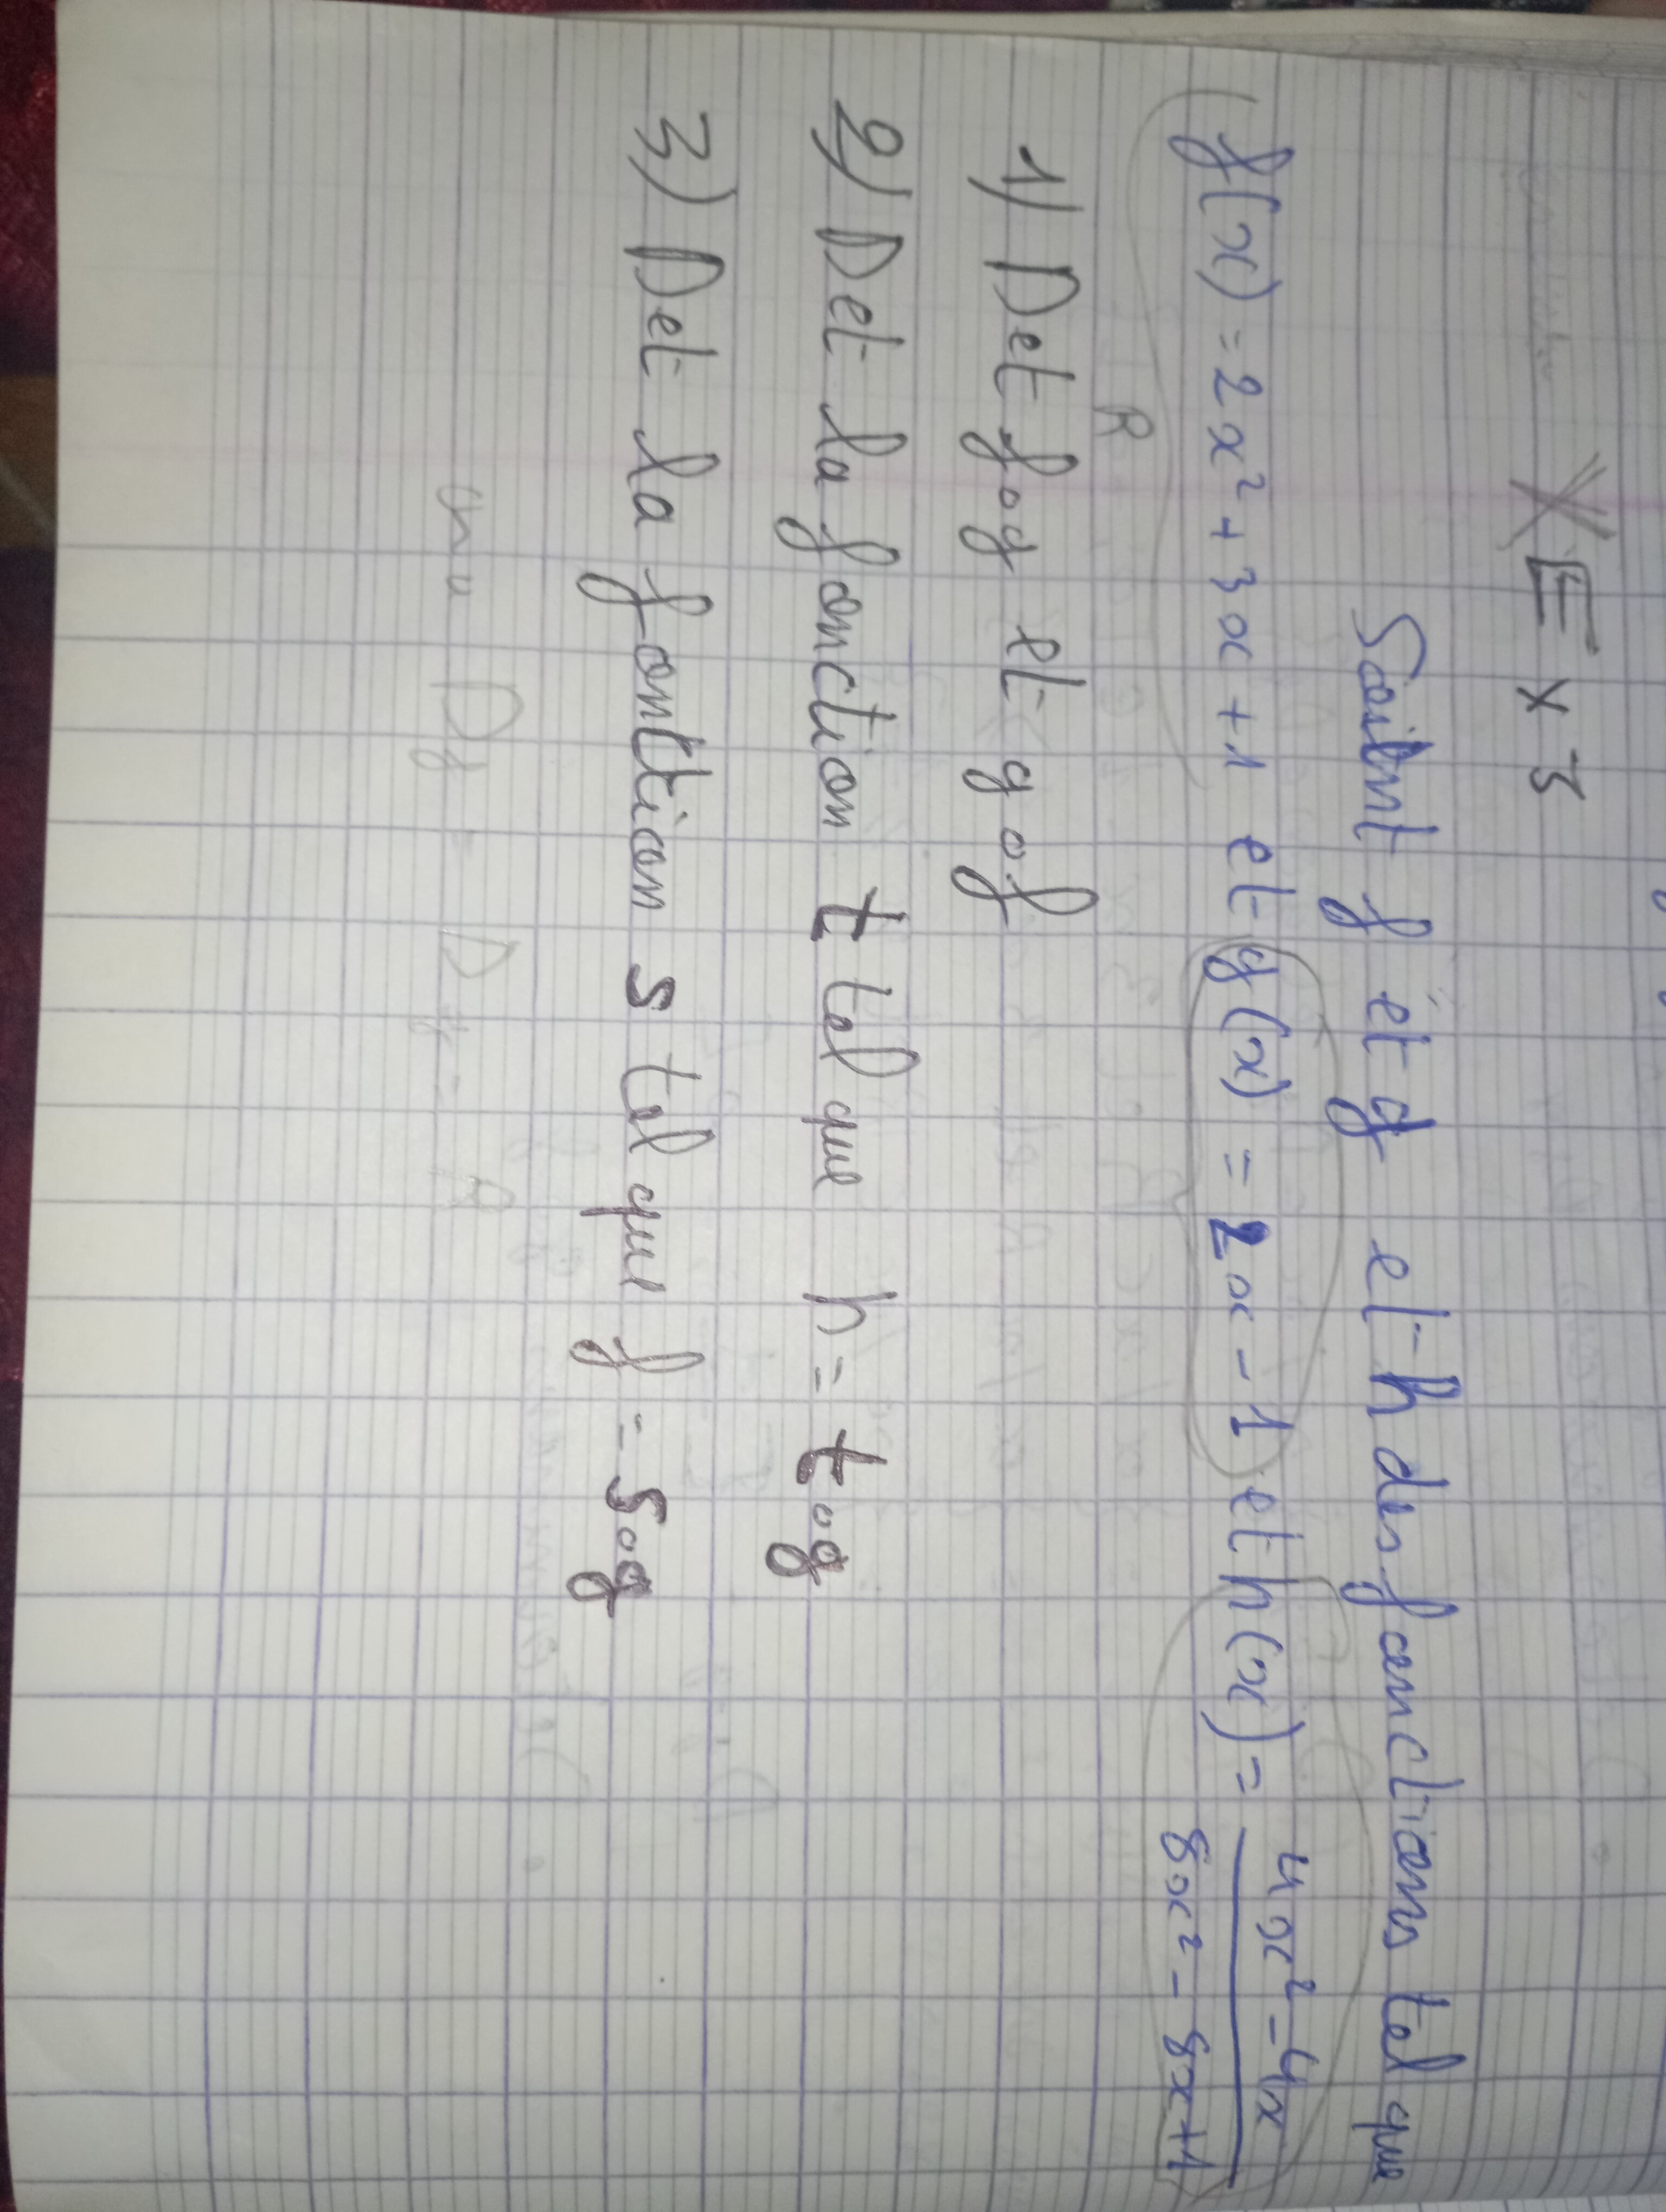 Ex 3
Soient f et g et h des fonctions tel que
f(x) = 2x² + 3x + 1 et g(x) = 2x - 1 et h(x) = (4x² - 4x)/(8x² - 8x + 1)
R
1) Det fog et gof
2) Det la fonction t tel que h = tog
3) Det la fontion s tel que f = sog